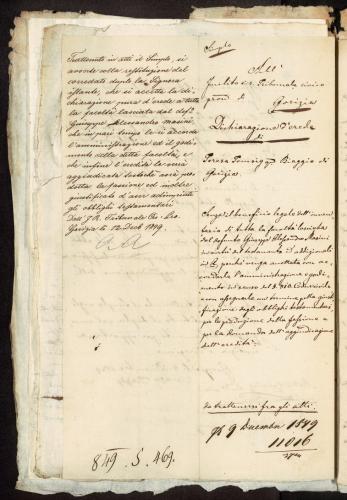 Trattenuto in atti il Simplo, si
avverte colla restituzione del
corredato duplo la Signora
istante, che si accetta la di-
chiarazione pura d'erede a tutta
la facoltà lasciata dal def.to
Giuseppe Alessandro Masini
che in pari tempo le si accorda
l'amministrazione ed il godi-
mento della detta facoltà, e
che infine l'eredità le verrà
aggiudicata tostochè avrà pro-
dotta la fassione ed inoltre
giustificato d'aver adempiuto
agli obblighi testamentari
Dall' I. R. Tribunale Civ. Prov.
Gorizia li 12 Dec. 1849.
849. S. 469.
Simplo
All'
Inclito i. r. Tribunale civico
prov. di
Gorizia
Dichiarazione d'erede
di
Teresa Biaggio di
Gorizia
Compresi il beneficio legale dell'inven-
tario di tutta la facoltà lasciata
dal defunto Giuseppe Alessandro Masini
in ordine del testamento
perchè venga accettata con ac-
cordarle l'amministrazione e godi-
mento a senso del § 810 Cod. civile
con assegnarle un termine per la giusti-
ficazione degli obblighi testamentari,
per la produzione della fassione e
per la domanda dell'aggiudicazione
dell'eredità.
da trattenersi fra gli atti.
9 Decembre 1849
11016